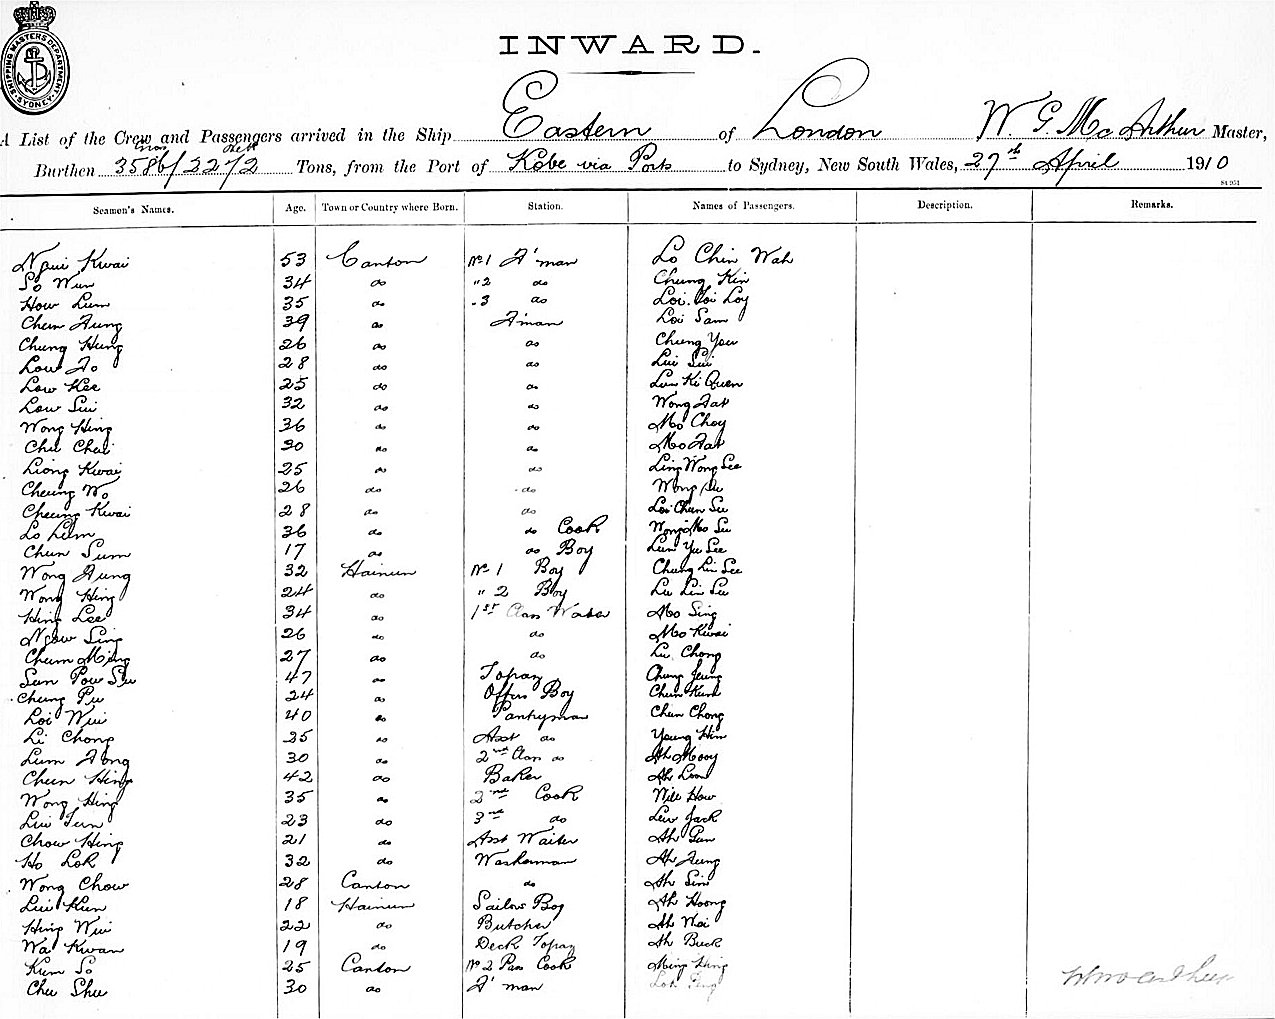 SHIPPING MASTERS DEPARTMENT SYDNEY
INWARD.
A List of the Crew and Passengers arrived in the Ship Eastern of London W. G. McArthur Master,
Burthen 3586/2272 Tons, from the Port of Kobe via Ports to Sydney, New South Wales, 27th April 1910
Seamen's Names. Age. Town or Country where Born. Station. Names of Passengers. Description. Remarks.
Ngui Kwai 53 Canton No. 1 F'man Lo Chin Wah
So Wun 34 do "2 do Chung Kin
How Lum 35 do .3 do Loi Loy
Chun Fung 39 do F'man Loi Sam
Chung Hung 26 do do Chung You
Low Fo 28 do do Lui Sui
Low Kee 25 do do Lun Ki Quen
Low Sui 32 do do Wong Fat
Wong Hing 36 do do Mo Choy
Chu Chui 30 do do Mo Fat
Liong Kwai 25 do do Ling Wong See
Cheung Wo 26 do do Wong
Cheung Kwai 28 do do Loi Chun Su
Lo Lum 36 do do Cook Wong Mo Su
Chun Sum 17 do do Boy Lun Yu See
Wong Fung 32 Hainun No 1 Boy Chung Lin See
Wong Hing 24 do " 2 Boy Lu Lin Su
Hing Lee 34 do 1st Class Waiter Mo Sing
Ngow Sing 26 do do Mo Kwai
Chum Ming 27 do do Lu Chong
Sun Pow Siu 47 do Topaz Chung Jeung
Chung Pu 24 do Offrs Boy Chun Kum
Loi Wui 40 do Pantryman Chun Chong
Li Chong 35 do Asst do Young Him
Lum Fong 30 do 2nd Class do Ah Mooy
Chun Hing 42 do Baker Ah Loon
Wong Hing 35 do 2nd Cook How
Lui Tun 23 do 3rd do Lew Jack
Chow Hing 21 do Asst Waiter Ah Pan
Ho Lok 32 do Washerman Ah Fung
Wong Chow 28 Canton do Ah Sim
Lui Kun 18 Hainun Sailors Boy Ah Hoong
Hing Wui 22 do Butcher Ah Wai
Wa Kwan 19 do Deck Topaz Ah Buck
Kum So 25 Canton No 2 Pass Cook Ming Hing
Chu Shu 30 do F'man